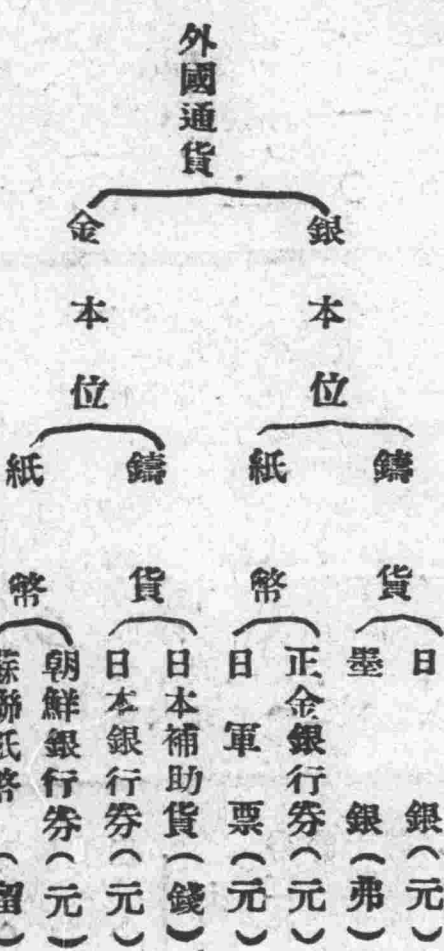 外國通貨
銀本位
鑄貨
日銀（元）
墨銀（弗）
紙幣
正金銀行券（元）
日軍票（元）
金本位
鑄貨
日本補助貨（錢）
日本銀行券（元）
紙幣
朝鮮銀行券（元）
蘇聯紙幣（留）